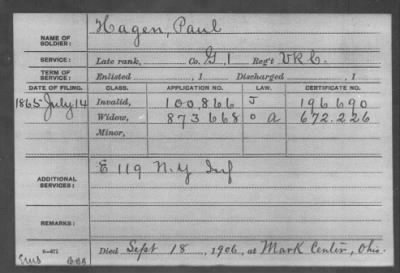 NAME OF SOLDIER: Hagen, Paul
SERVICE: Late rank, Co. G. 1 Reg't V.R.C.
TERM OF SERVICE: Enlisted , 1 Discharged , 1
DATE OF FILING. CLASS. APPLICATION NO. LAW. CERTIFICATE NO.
1865 July 14 Invalid, 100,866 J 196690
Widow, 873668 O A 672.226
Minor,
ADDITIONAL SERVICES: E 119 N.Y. Inf
REMARKS:
Died Sept 18, 1906, at Mark Center, Ohio.